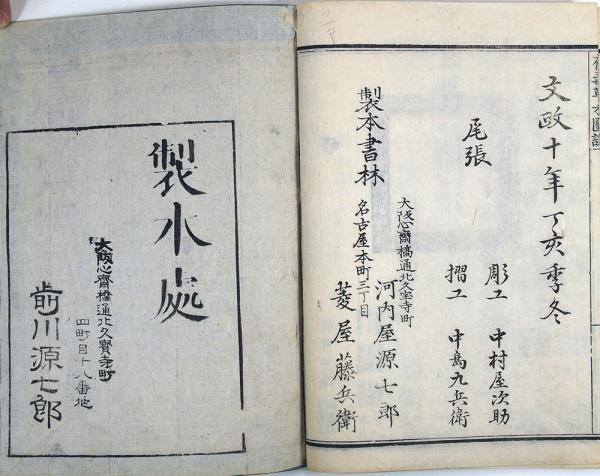 文政十年丁亥季冬
尾張
彫工 中村屋次助
摺工 中島九兵衛
製本書林
大阪心齋橋通北久宝寺町
河内屋源七郎
名古屋本町三丁目
菱屋藤兵衛
製本處
大阪心齋橋通北久寳寺町
四町目十八番地
前川源七郎